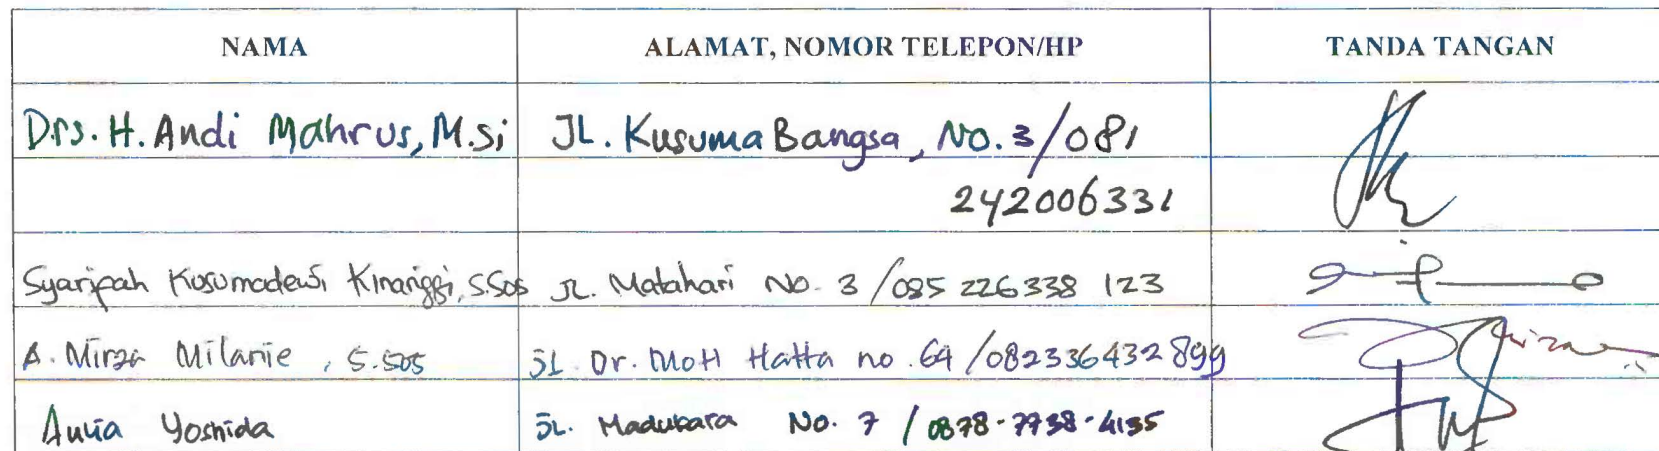 NAMA ALAMAT, NOMOR TELEPON/HP TANDA TANGAN
Drs. H. Andi Mahrus, M.Si JL. Kusuma Bangsa, No. 3/081
242006331
Syaripah Kusumadewi Kinanggi, S.Sos JL. Matahari No. 3 /085 226338 123
A. Mirza Milanie, S.Sos JL. Dr. MoH Hatta no. 64 /082336432899
Yoshida JL. No. 7 / 0878-7738-4135